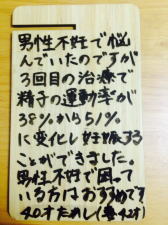 男性不妊で悩
んでいたのですが
3回目の治療で
精子の運動率が
38%から51%
に変化し妊娠する
ことができました。
男性不妊で困って
いる方はおすすめです
40才ためし(妻42才)